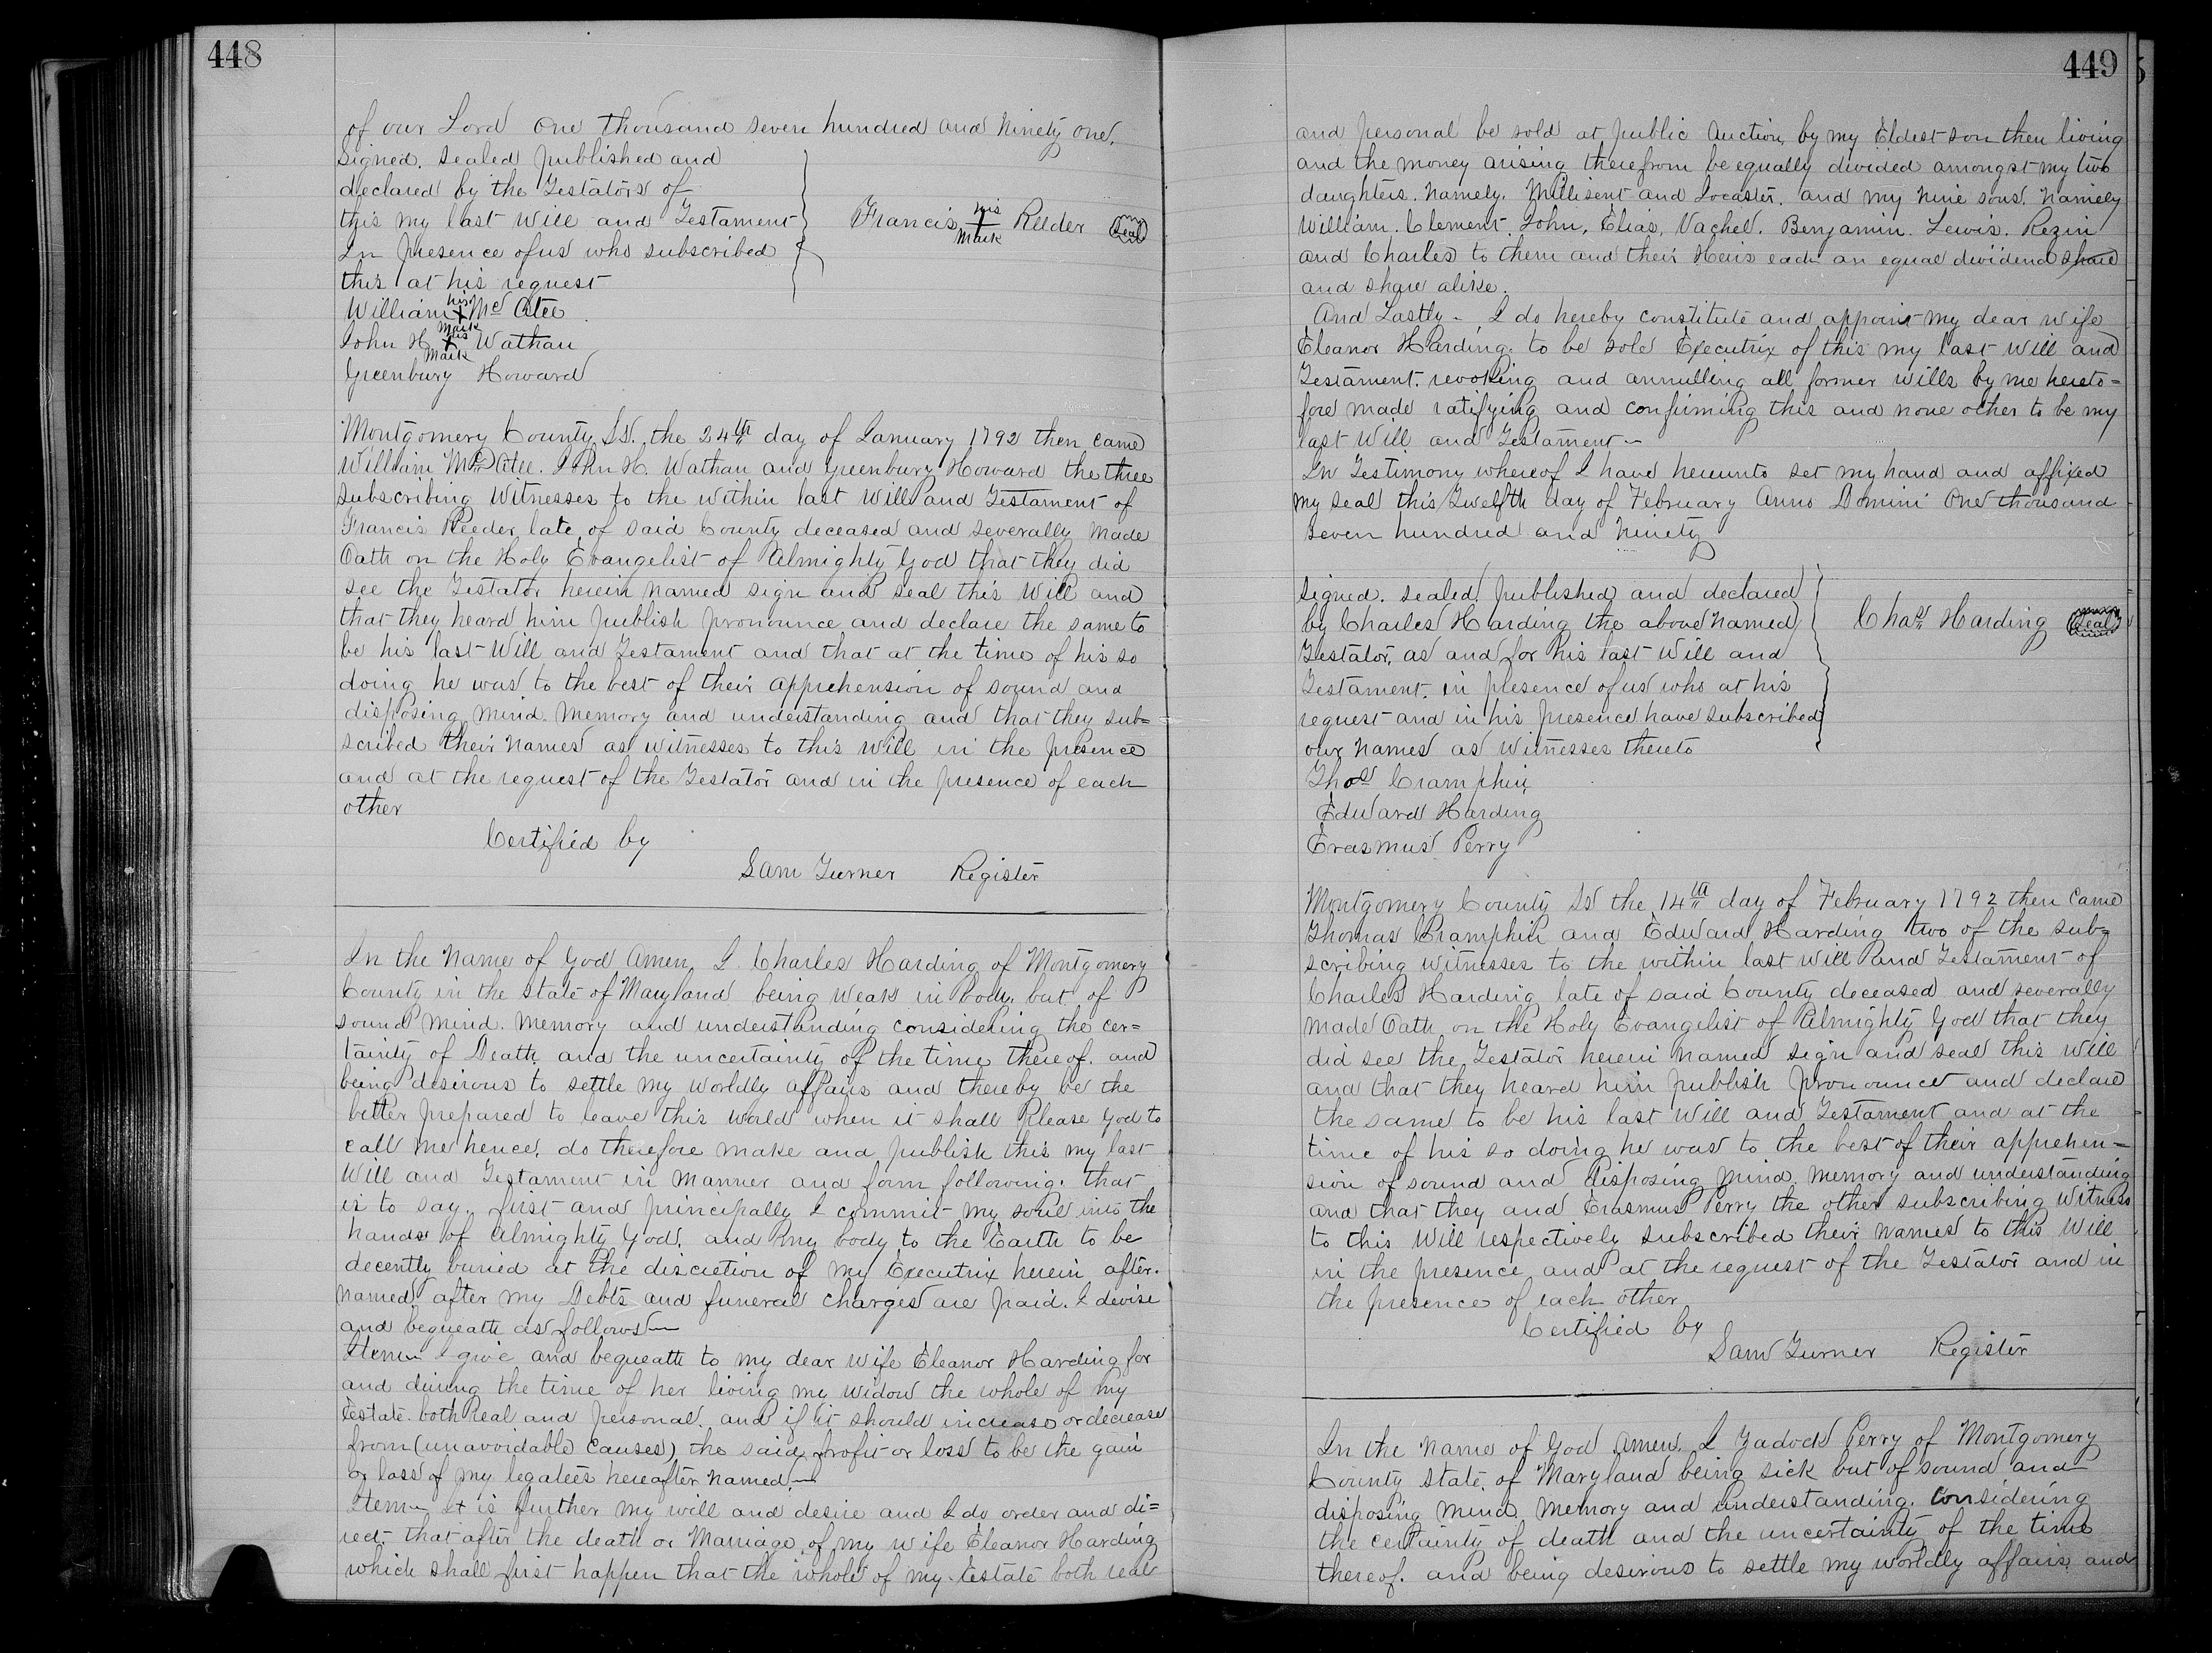 448
of our Lord One thousand seven hundred and Ninety one.
Signed. Sealed published and
declared by the Testators of
this my last Will and Testament
In presence of us who subscribed
this at his request
Francis his Mark Reeder Seal
William his Mark McAtee
John H his Mark Wathan
Greenbury Howard
Montgomery County Ss. the 24th day of January 1792 then came
William McAtee. John H. Wathan and Greenbury Howard the three
subscribing Witnesses to the within last Will and Testament of
Francis Reeder late of said County deceased and severally Made
Oath on the Holy Evangelist of Almighty God that they did
see the Testator herein Named sign and seal this Will and
that they heard him publish pronounce and declare the same to
be his last Will and Testament and that at the time of his so
doing he was to the best of their apprehension of sound and
disposing Mind. Memory and understanding and that they sub=
scribed their Names as witnesses to this Will in the presence
and at the request of the Testator and in the presence of each
other
Certified by
Sam Turner Register
In the Name of God Amen, I. Charles Harding of Montgomery
County in the State of Maryland being Weak in body. but of
sound Mind. Memory and understanding considering the cer=
tainty of Death and the uncertainty of the time thereof. and
being desirous to settle My worldly affairs and thereby be the
better prepared to leave this world when it shall Please God to
call me hence. do therefore make and publish this my last
Will and Testament in Manner and form following. that
is to say. first and principally I commit my soul into the
hands of Almighty God. and my body to the Earth to be
decently buried at the discretion of my Executrix herein after.
Named after my Debts and funeral charges are paid. I devise
and bequeath as follows
Item I give and bequeath to my dear Wife Eleanor Harding for
and during the time of her living my widow the whole of my
Estate. both Real and personal. and if it should increase or decrease
from (unavoidable causes) the said profit or loss to be the gain
or loss of my legatees hereafter named.
Item It is further my will and desire and I do order and di=
rect that after the death or Marriage of my wife Eleanor Harding
which shall first happen that the whole of my Estate both real
449
and personal be sold at public Auction by my Eldest son then living
and the money arising therefrom be equally divided amongst my two
daughters. Namely. Millisent and Locaster. and my Nine sons. Namely
William. Clement. John, Elias, Vachel. Benjamin. Lewis. Rezin
and Charles to them and their Heirs each an equal dividend share
and share alike.
And Lastly – I do hereby constitute and appoint my dear wife
Eleanor Harding. to be sole Executrix of this my last will and
Testament. revoking and annulling all former wills by me hereto=
fore made ratifying and confirming this and none other to be my
last Will and Testament –
In Testimony whereof I have hereunto set my hand and affixed
my seal this Twelfth day of February Anno Domini One thousand
seven hundred and Ninety
Signed. sealed. published and declared
by Charles Harding the above Named
Testator, as and for his last Will and
Testament. in presence of us who at his
request and in his presence have subscribed
our names as Witnesses thereto
Chas Harding Seal
Thos Cramphin
Edward Harding
Erasmus Perry
Montgomery County Ss the 14th day of February 1792 then came
Thomas Cramphin and Edward Harding two of the sub=
scribing witnesses to the within last Will and Testament of
Charles Harding late of said County deceased and severally
Made Oath on the Holy Evangelist of Almighty God that they
did see the Testator herein Named sign and seal this Will
and that they heard him publish pronounce and declare
the same to be his last Will and Testament and at the
time of his so doing he was to the best of their apprehen=
sion of sound and disposing Mind. Memory and understanding
and that they and Erasmus Perry the other subscribing Witness
to this Will respectively subscribed their names to this Will
in the presence and at the request of the Testator and in
the presence of each other
Certified by
Sam Turner Register
In the Name of God Amen. I Zadock Perry of Montgomery
County State of Maryland being sick but of sound and
disposing Mind Memory and understanding. Considering
the certainty of death and the uncertainty of the time
thereof. and being desirous to settle my worldly affairs and